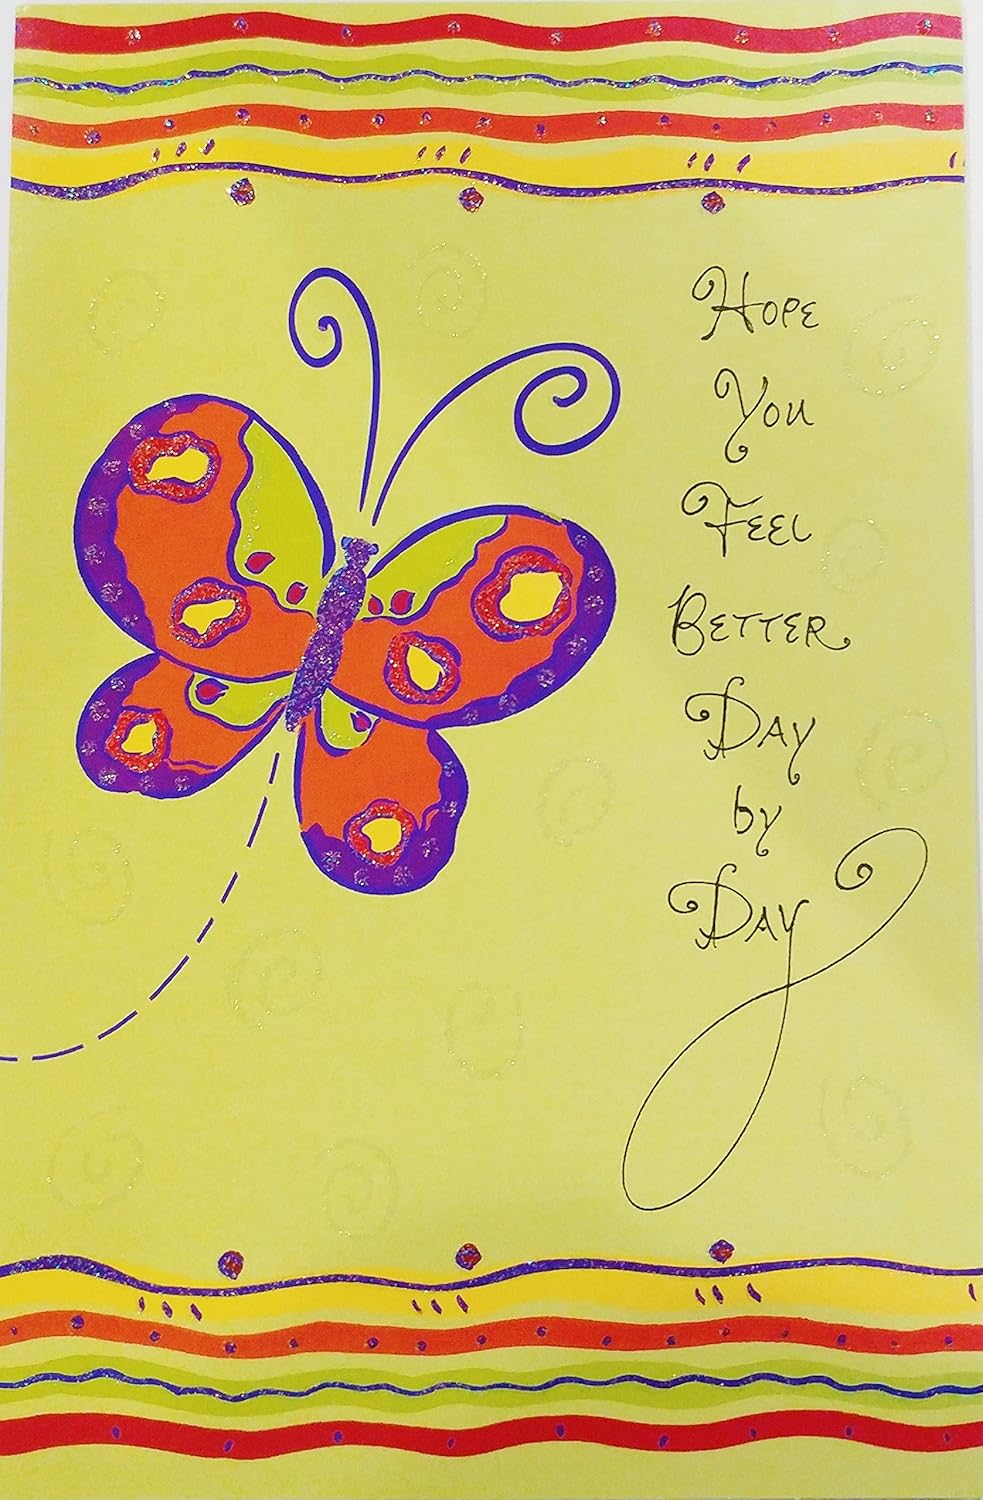 Hope
You
Feel
Better
Day
by
Day